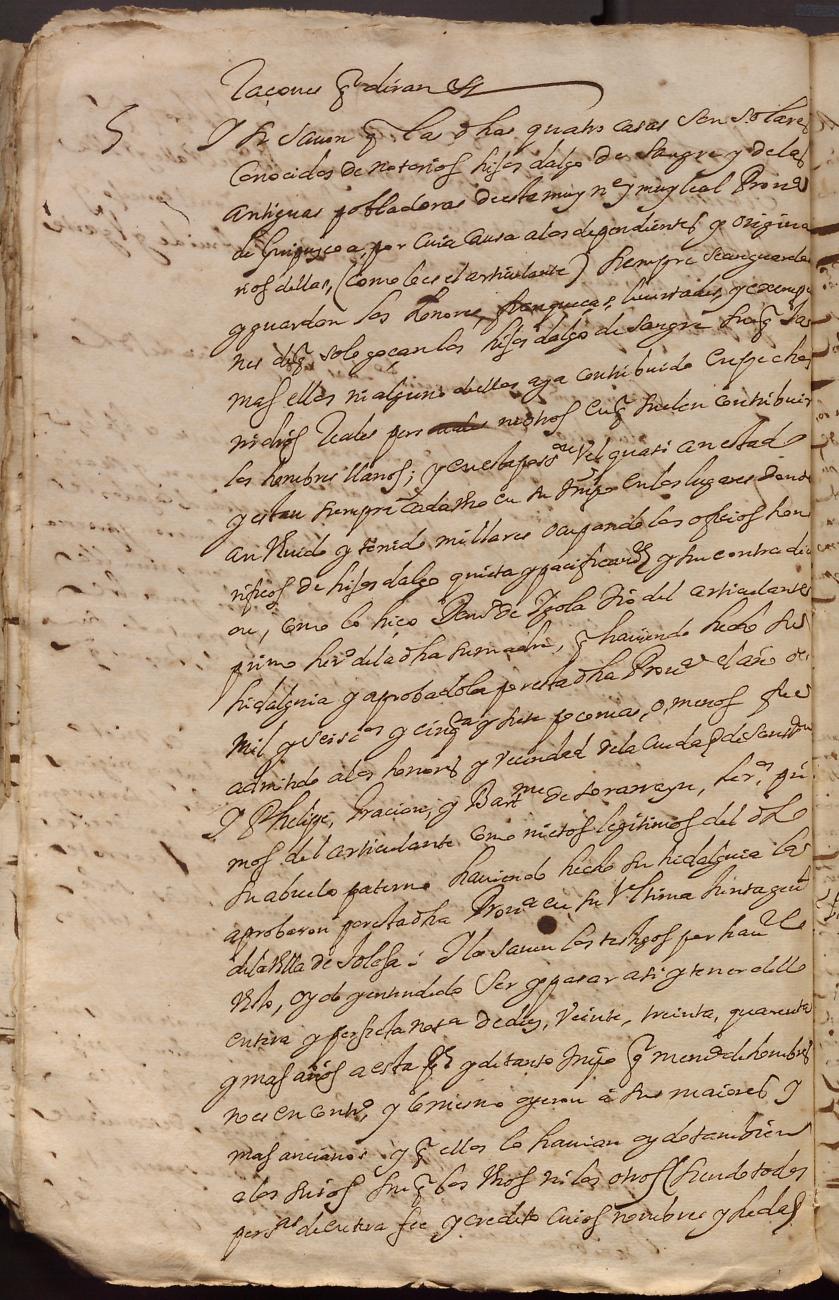 raçones q̃ diran
5 Y si saven q̃ las dhas quatro casas son solares
conocidos de notorios hijos dalgo de sangre y de las
antiguas pobladoras de esta muy nᵉ y muy leal Provᵃ
de Guipuscoa, por cuia causa a los dependientes y origina
rios dellas, (como lo es el articulante) siempre se an guarda
y guardan los honores, franqueças, livertades, y exemp
nes de q̃ solo goçan los hijos dalgo de sangre sin q̃ Ja
mas ellos ni alguno dellos aya contribuido en pechos
ni dros Reales ni otros en q̃ suelen contribuir
los hombres llanos; y en esta possᵒⁿ vel quasi an estado
y estan siempre cada uno en su tiempo en los lugares donde
an vivido y tenido millares ocupando los oficios hon
rificos de hijos dalgo quieta y pacificamᵗᵉ y sin contradi
on, como lo hiço de Ysola tio del articulante
primo herᵒ de la dha su madre, q̃ haviendo hecho su
hidalguia y aprobadola por esta dha Provᵃ el año de
mil y seiscᵒˢ y cinqᵗᵃ y siete poco mas, o menos fue
admitido a los honores y vecindad de la Ciudad de San
Y Phelipe, y Barᵐᵉ de herᵒˢ, pri
mos del articulante como nietos legitimos del dho
su abuelo paterno haviendo hecho su hidalguia la
aprobaron por esta dha Provᵃ en su Ultima Junta genˡ
de la Villa de Tolosa: Y lo saven los testigos por haverlo
visto, oydo y entendido ser y pasar asi y tener dello
entera y perfecta notᵃ de diez, veinte, treinta, quarenta
y mas años a esta pᵗᵉ y de tanto tiempo q̃ memᵃ de hombres
no es en contrᵒ, y lo mismo oyeron a sus maiores y
mas ancianos y q̃ ellos lo havian oydo tambien
a los suios sin q̃ los unos ni los otros (siendo todos
persᵃˢ de entera fee y credito cuios nombres y hedad